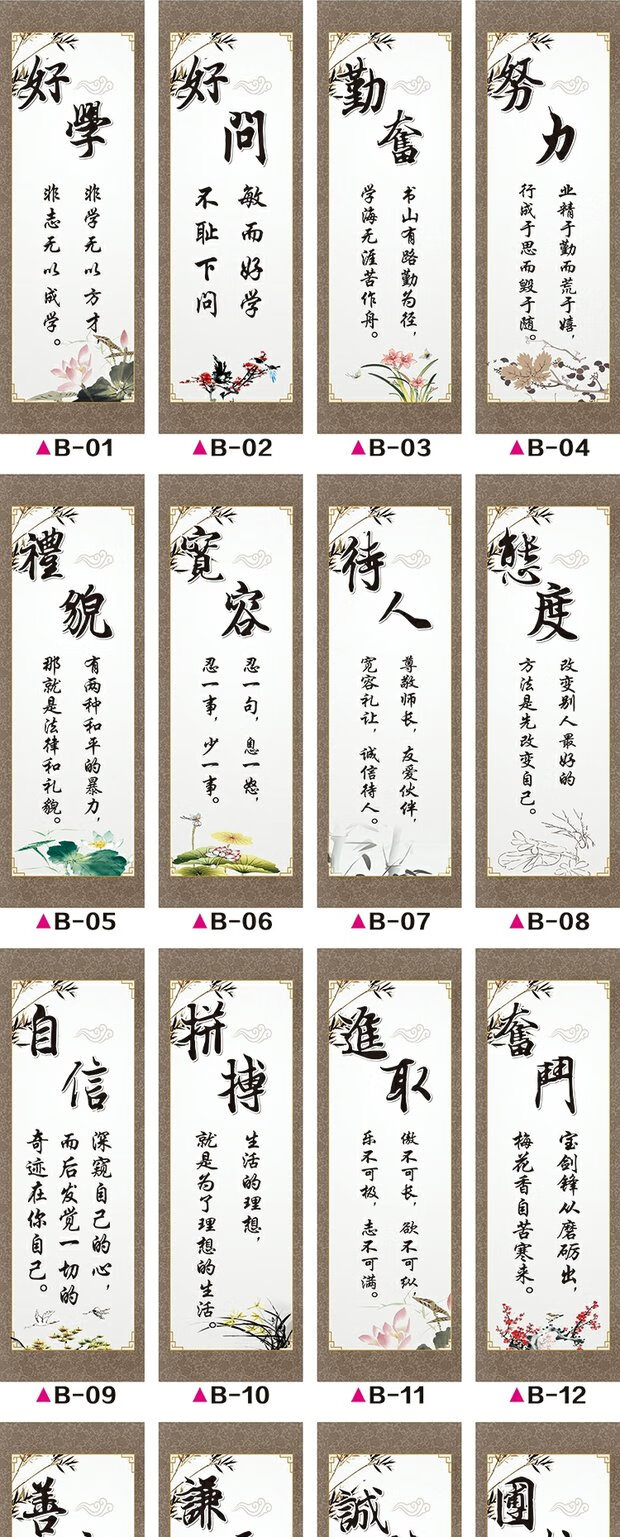 好學
非学无以方才
非志无以成学。
▲B-01
好問
敏而好学
不耻下问
▲B-02
勤奮
书山有路勤为径，
学海无涯苦作舟。
▲B-03
努力
业精于勤而荒于嬉，
行成于思而毁于随。
▲B-04
禮貌
有两种和平的暴力，
那就是法律和礼貌。
▲B-05
寬容
忍一句，息一怒，
忍一事，少一事。
▲B-06
待人
尊敬师长，友爱伙伴，
宽容礼让，诚信待人。
▲B-07
態度
改变别人最好的
方法是先改变自己。
▲B-08
自信
深窥自己的心，
而后发觉一切的
奇迹在你自己。
▲B-09
拼搏
生活的理想，
就是为了理想的生活。
▲B-10
進取
傲不可长，欲不可纵
乐不可极，志不可满。
▲B-11
奮鬥
宝剑锋从磨砺出，
梅花香自苦寒来。
▲B-12
善
謙
誠
團